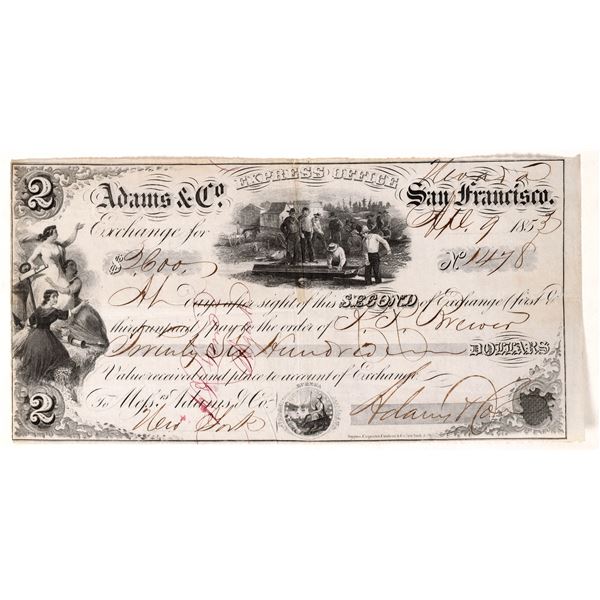 EXPRESS OFFICE
Nevada
2 Adams & Co. San Francisco.
Apl. 9 1853
Exchange for
$2600. No. 1478
At Days after sight of this SECOND of Exchange (first &
third unpaid) pay to the order of Brewer
Twenty Six Hundred DOLLARS
Value received and place to account of Exchange
2 To Messrs. Adams & Co. Adams & Co
New York
EUREKA